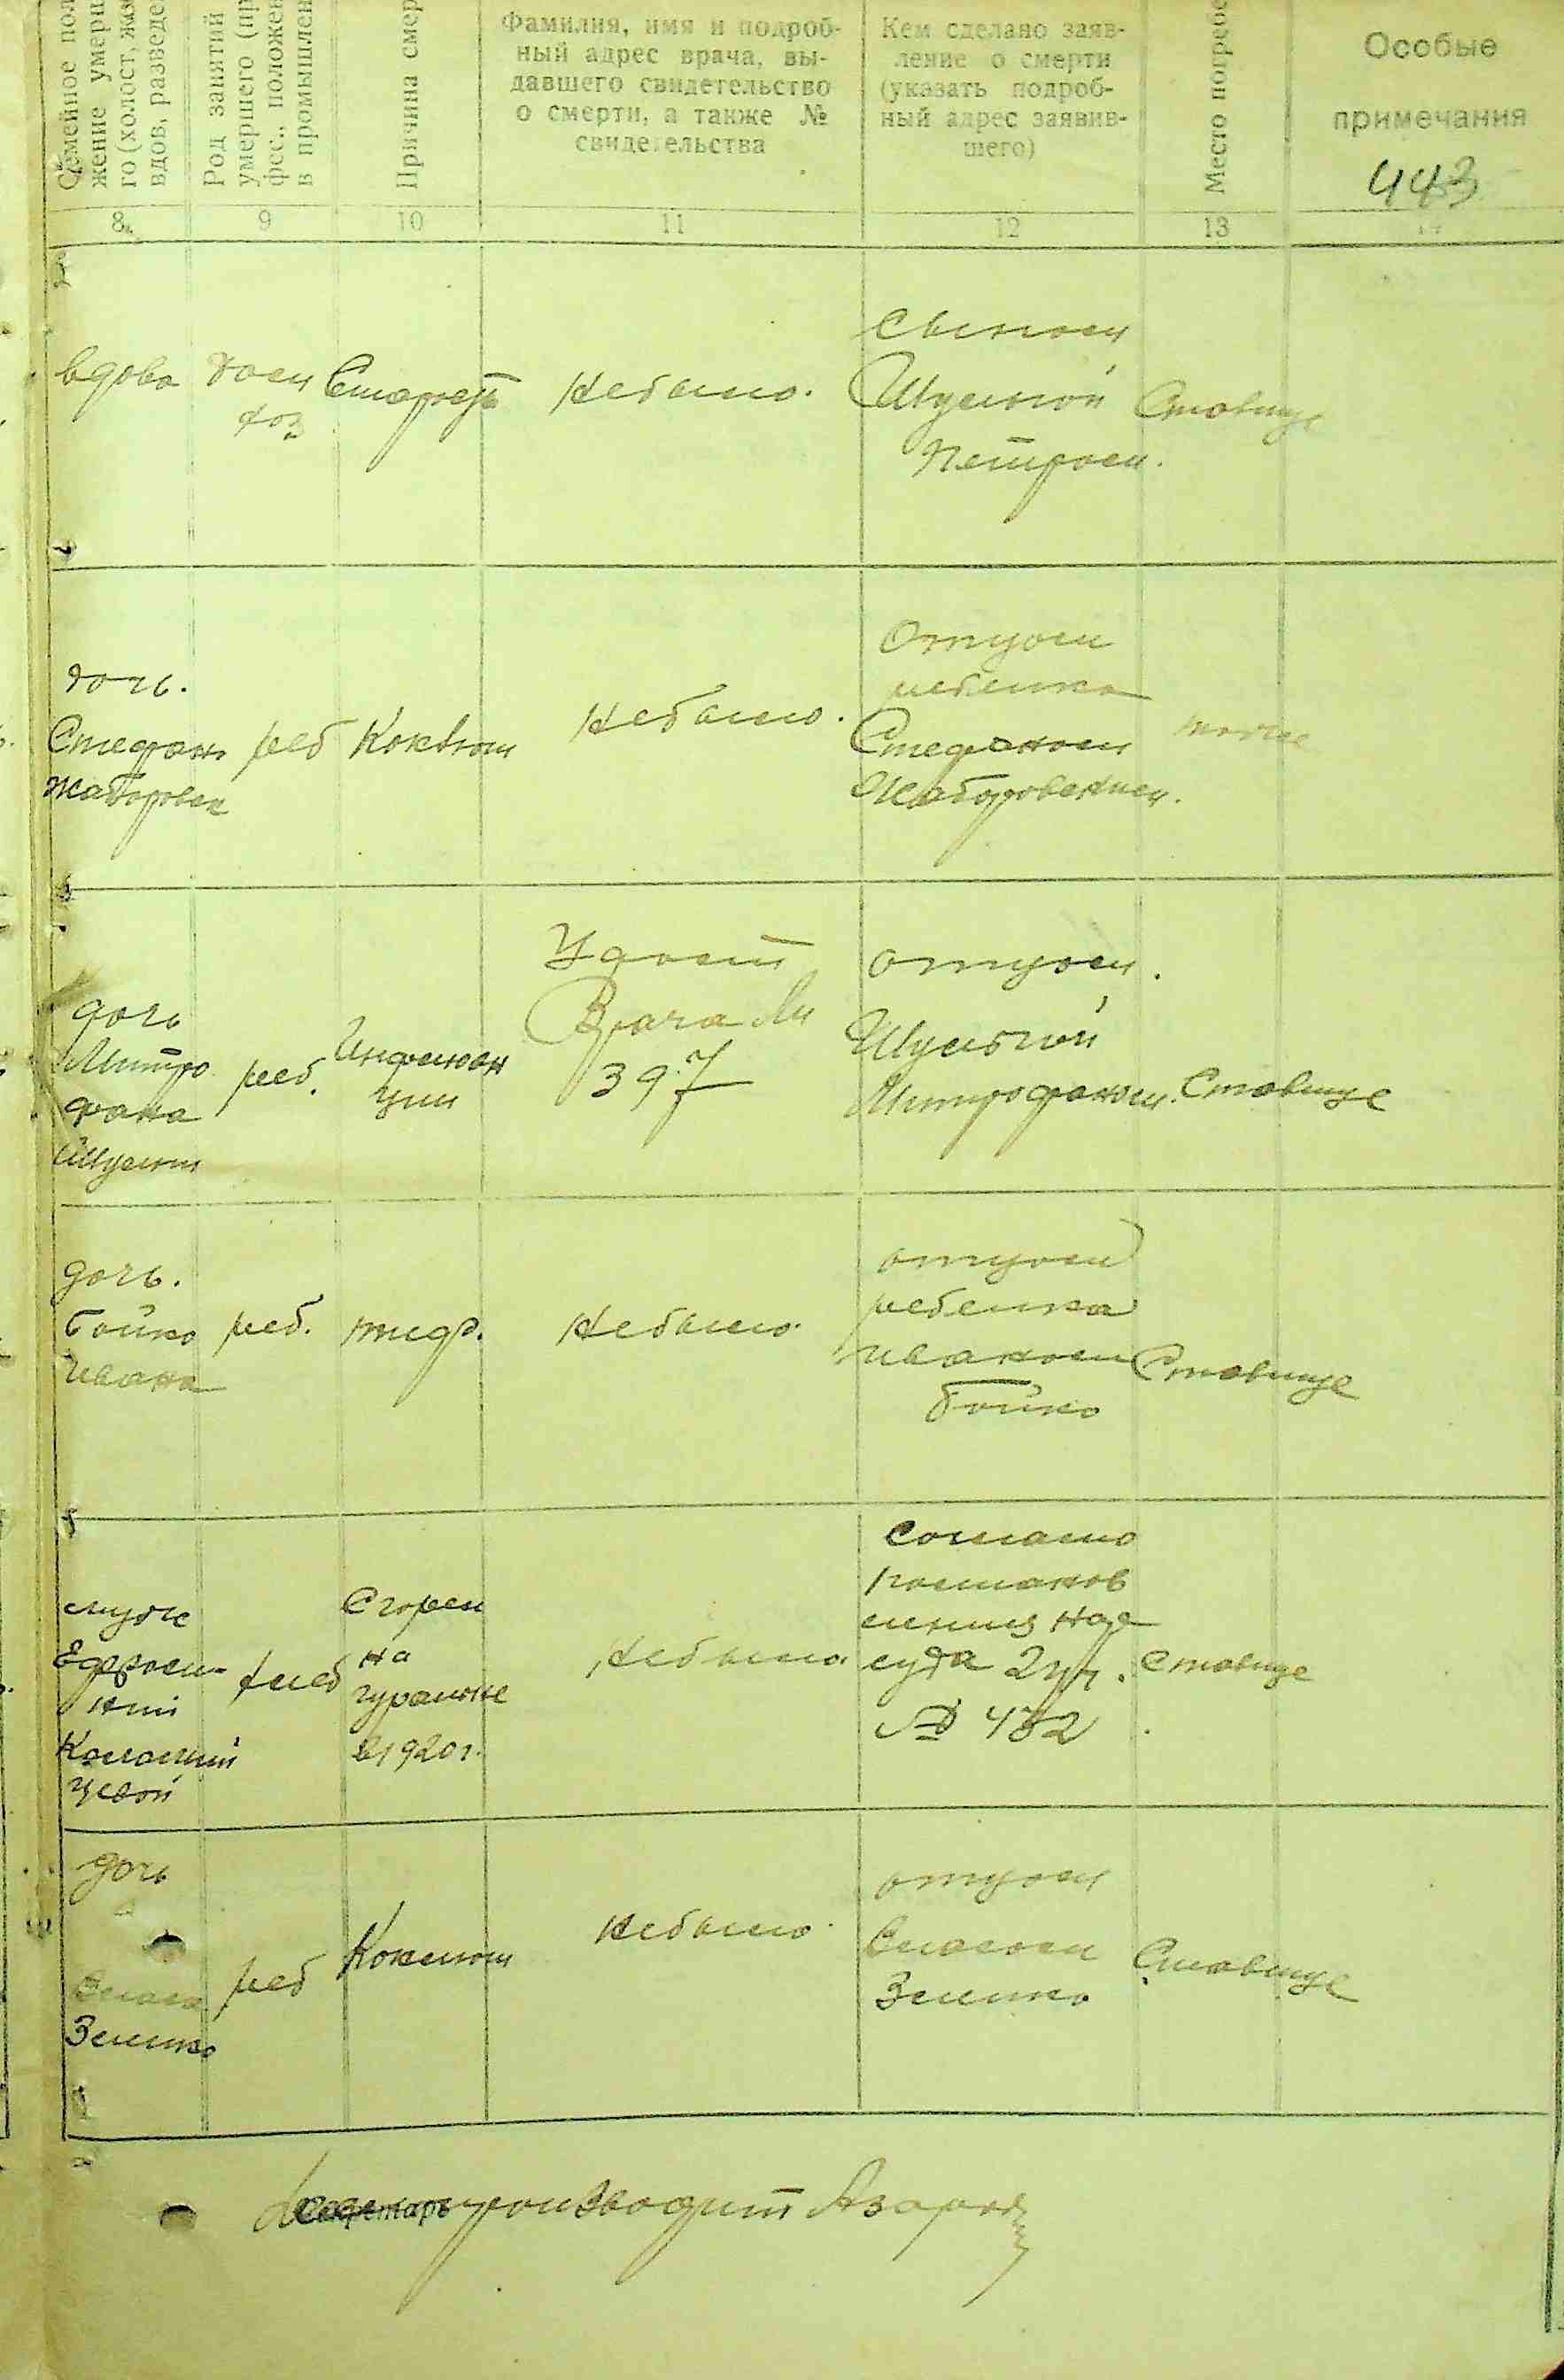 Семейное поло-
жение умерше-
го (холост, жен
вдов, разведе
Род занятий
умершего (пр
фес., положен
в промышлен
Причина смер
Фамилия, имя и подроб-
ный адрес врача, вы-
давшего свидетельство
о смерти, а также №
свидетельства
Кем сделано заяв-
ление о смерти
(указать подроб-
ный адрес заявив-
шего)
Место погребе
Особые
примечания
443
8
9
10
11
12
13
вдова
дом
хоз
Старость
Небыло.
Сыном
Шульгой
Петром.
Ставище
дочь.
Стефана
Жабровск
реб
Коклюш
Небыло.
Отцом
ребенка
Стефаном
Жабровским.
тоже
дочь
Митро
фана
Шульги
реб.
Удост
Врача
397
отцом.
Шульгой
Митрофаном.
Ставище
дочь.
Бойко
Ивана
реб.
тиф.
Небыло.
отцом
ребенка
иваном
Бойко
Ставище
муж
хлеб
Сгорел
на
в 1920 г.
Небыло.
Согласно
постанов
ления нар
суда 2 уч.
№ 432
Ставище
дочь
Власа
Зеленко
реб
Коклюш
Небыло.
отцом
Власом
Зеленко
Ставище
Секретарь